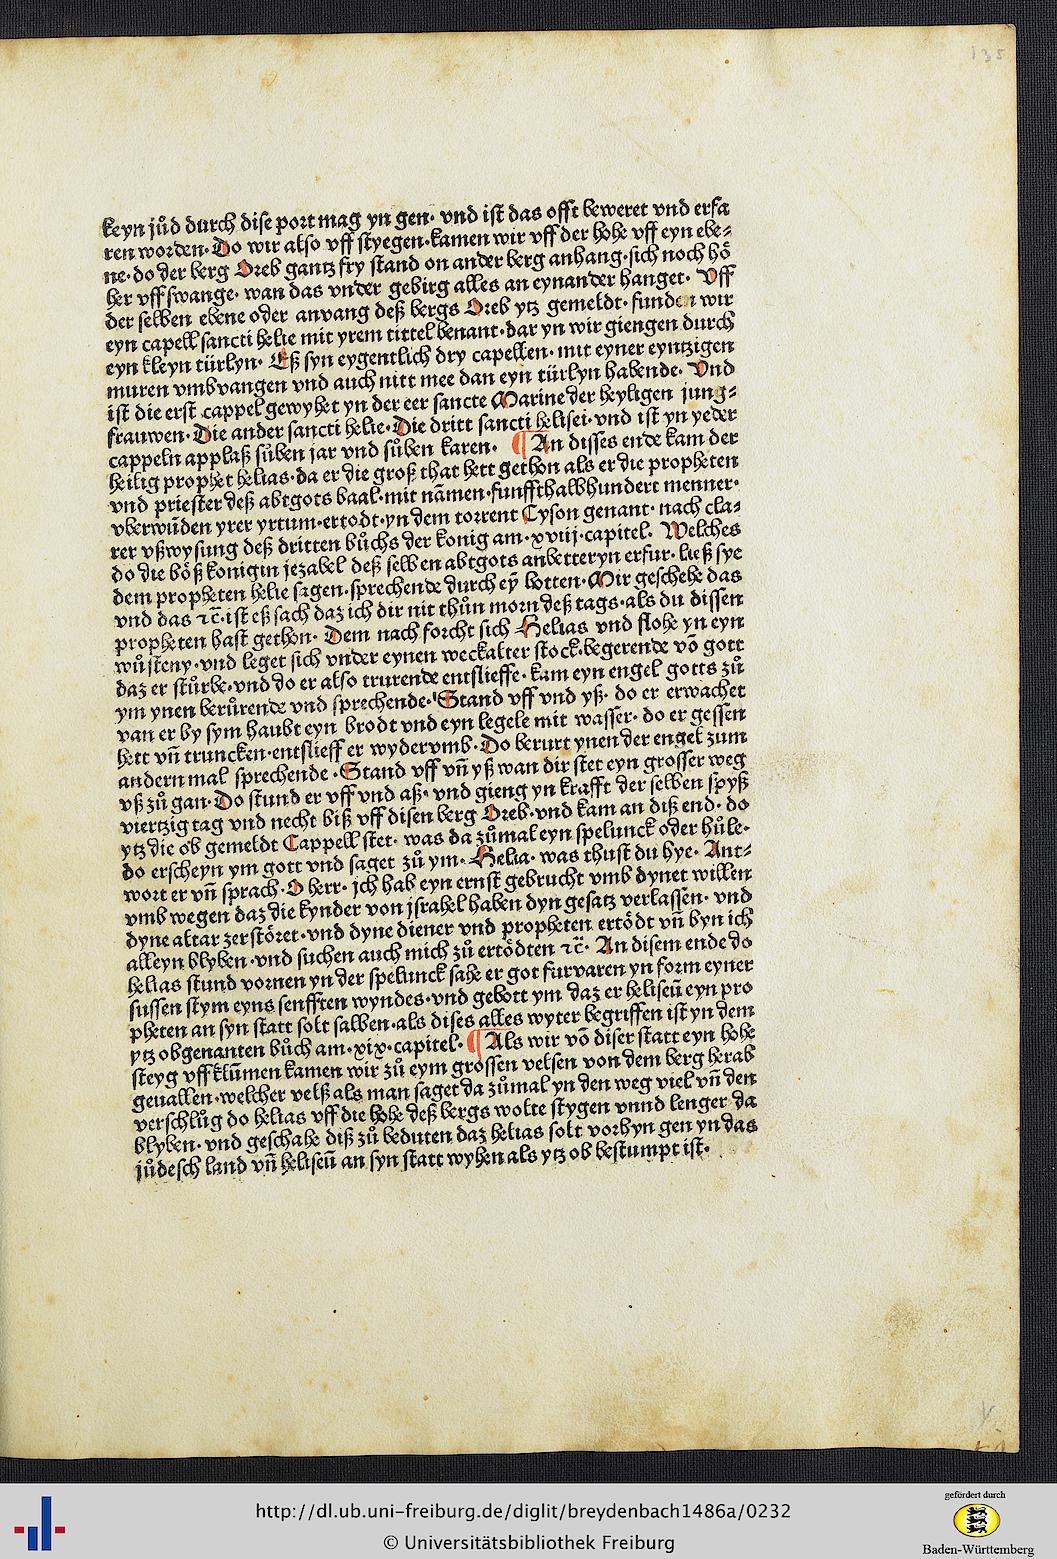 135
keyn jůd durch dise port mag yn gen· vnd ist das offt beweret vnd erfa
ren worden· Do wir also vff styegen·kamen wir vff der hohe vff eyn ebe⸗
ne·do der berg Oreb gantz fry stand on ander berg anhang·sich noch hö
her vffswange· wan das vnder gebirg alles an eynander hanget· Vff
der selben ebene oder anvang deß bergs Oreb ytz gemeldt·funden wir
eyn capell sancti helie mit yrem tittel benant·dar yn wir giengen durch
eyn kleyn türlyn· Eß syn eygentlich dry capellen·mit eyner eyntzigen
muren vmbvangen vnd auch nitt mee dan eyn türlyn habende· Vnd
ist die erst cappel gewyhet yn der eer sancte Marine der heyligen jung⸗
frauwen·Die ander sancti helie·Die dritt sancti helisei·vnd ist yn yeder
cappeln applaß süben jar vnd sůben karen· ¶ An disses ende kam der
heilig prophet helias·da er die groß that hett gethon als er die propheten
vnd priester deß abtgots baal·mit nãmen·funffthalbhundert menner·
vberwũden yrer yrtum·ertodt·yn dem torrent Cyson genant·nach cla⸗
rer vßwysung deß dritten bůchs der konig am·xviij·capitel· Welches
do die böß konigin jezabel deß selben abtgots anbetteryn erfur·ließ sye
dem propheten helie sagen·sprechende durch eỹ botten·Mir geschehe das
vnd das ꝛc̃·ist eß sach daz ich dir nit thůn morn deß tags·als du dissen
propheten hast gethon· Dem nach forcht sich Helias vnd flohe yn eyn
wůsteny·vnd leget sich vnder eynen weckalter stock·begerende võ gott
daz er stůrbe·vnd do er also trurende entslieffe·kam eyn engel gotts zů
ym ynen berůrende vnd sprechende·Stand vff vnd yß· do er erwachet
van er by sym haubt eyn brodt vnd eyn legele mit wasser·do er gessen
hett vñ truncken·entslieff er wydervmb·Do berurt ynen der engel zum
andern mal sprechende·Stand vff vñ yß wan dir stet eyn grosser weg
vß zů gan·Do stund er vff vnd aß·vnd gieng yn krafft der selben spyß
viertzig tag vnd necht biß vff disen berg Oreb·vnd kam an diß end·do
ytz die ob gemeldt Cappell stet·was da zůmal eyn spelunck oder hůle·
do erscheyn ym gott vnd saget zů ym·Helia·was thust du hye·Ant⸗
wort er vñ sprach·O herr·jch hab eyn ernst gebrucht vmb dynet willen
vmb wegen daz die kynder von jsrahel haben dyn gesatz verlassen·vnd
dyne altar zerstöret·vnd dyne diener vnd propheten ertödt vñ byn ich
alleyn blyben·vnd suchen auch mich zů ertödten ꝛc̃· An disem ende do
helias stund vornen yn der spelunck sahe er got furvaren yn form eyner
sussen stym eyns senfften wyndes·vnd gebott ym daz er heliseũ eyn pro
pheten an syn statt solt salben·als dises alles wyter begriffen ist yn dem
ytz obgenanten bůch am·xix·capitel· ¶ Als wir võ diser statt eyn hohe
steyg vff klũmen kamen wir zů eym grossen velsen von dem berg herab
geuallen·welcher velß als man saget da zůmal yn den weg viel vñ den
verschlůg do helias vff die hohe deß bergs wolte stygen vnnd lenger da
blyben·vnd geschahe diß zů beduten daz helias solt vorhyn gen yn das
jůdesch land vñ heliseũ an syn statt wyhen als ytz ob bestumpt ist·
http://dl.ub.uni-freiburg.de/diglit/breydenbach1486a/0232
© Universitätsbibliothek Freiburg
gefördert durch
Baden-Württemberg